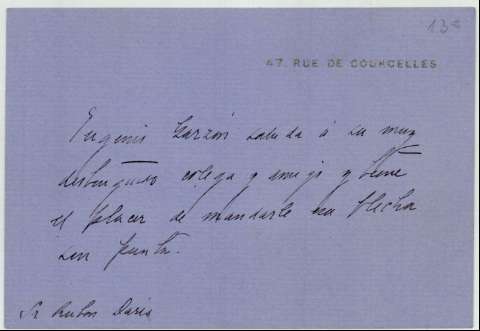 13
47, RUE DE COURCELLES
Eugenio Garzón saluda á su muy
distinguido colega y amigo y tiene
el placer de mandarle su flecha
sin punta.
Sr Rubén Darío